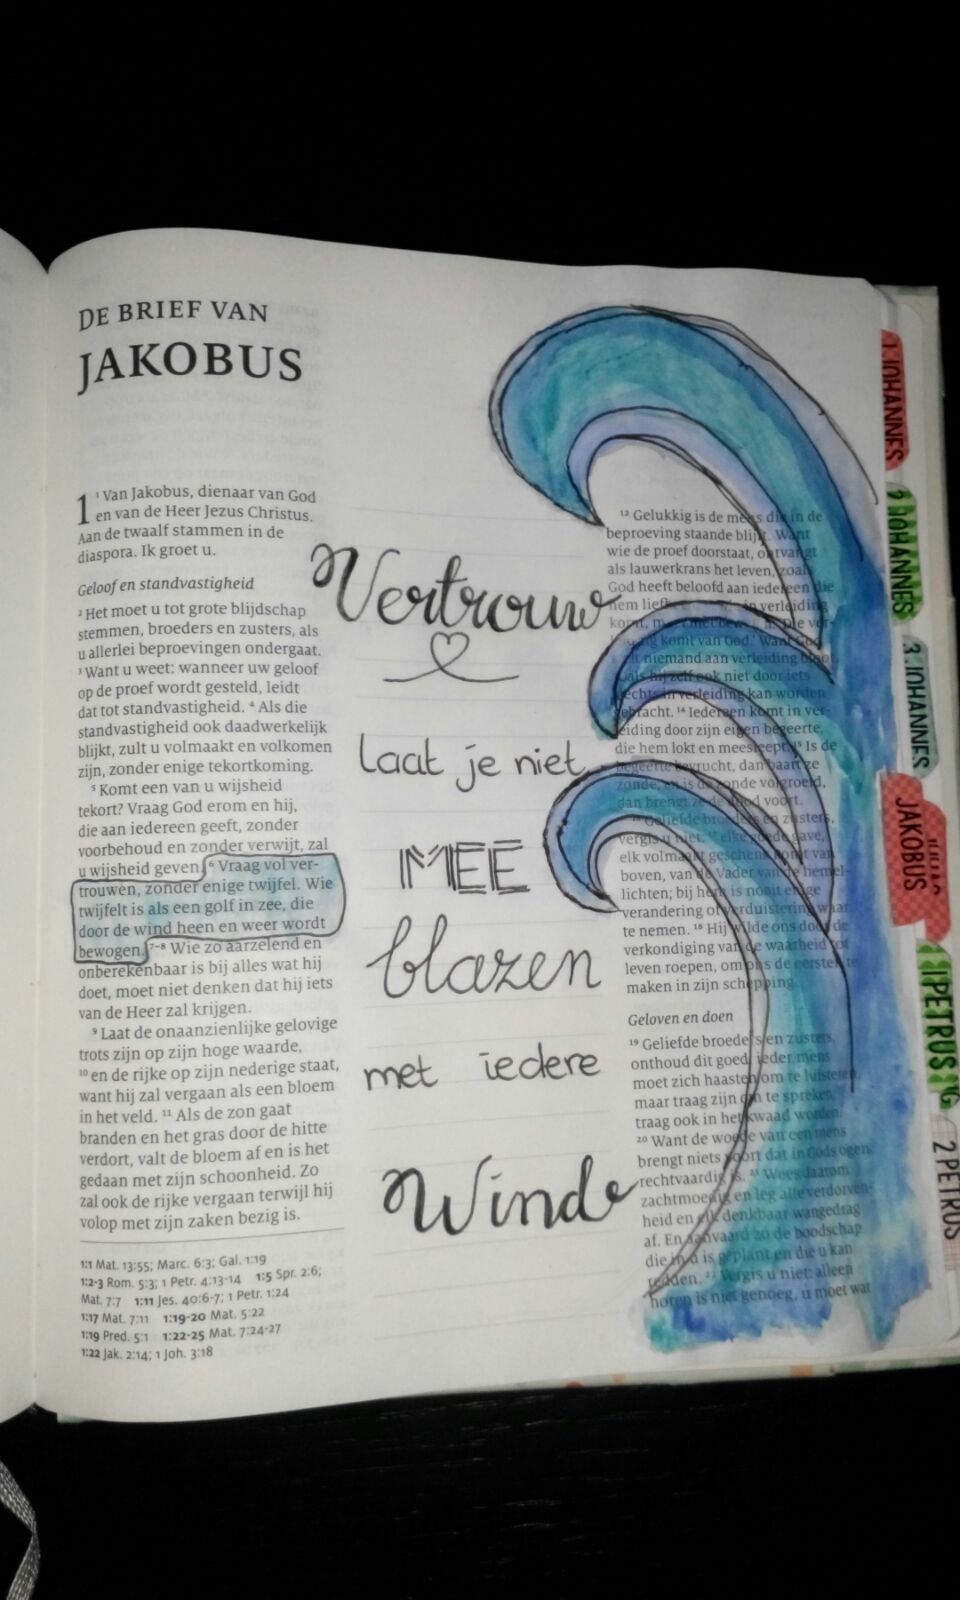 DE BRIEF VAN
JAKOBUS
1 ¹ Van Jakobus, dienaar van God
en van de Heer Jezus Christus.
Aan de twaalf stammen in de
diaspora. Ik groet u.
Geloof en standvastigheid
² Het moet u tot grote blijdschap
stemmen, broeders en zusters, als
u allerlei beproevingen ondergaat.
³ Want u weet: wanneer uw geloof
op de proef wordt gesteld, leidt
dat tot standvastigheid. ⁴ Als die
standvastigheid ook daadwerkelijk
blijkt, zult u volmaakt en volkomen
zijn, zonder enige tekortkoming.
⁵ Komt een van u wijsheid
tekort? Vraag God erom en hij,
die aan iedereen geeft, zonder
voorbehoud en zonder verwijt, zal
u wijsheid geven. ⁶ Vraag vol ver-
trouwen, zonder enige twijfel. Wie
twijfelt is als een golf in zee, die
door de wind heen en weer wordt
bewogen. ⁷⁻⁸ Wie zo aarzelend en
onberekenbaar is bij alles wat hij
doet, moet niet denken dat hij iets
van de Heer zal krijgen.
⁹ Laat de onaanzienlijke gelovige
trots zijn op zijn hoge waarde,
¹⁰ en de rijke op zijn nederige staat,
want hij zal vergaan als een bloem
in het veld. ¹¹ Als de zon gaat
branden en het gras door de hitte
verdort, valt de bloem af en is het
gedaan met zijn schoonheid. Zo
zal ook de rijke vergaan terwijl hij
volop met zijn zaken bezig is.
1:1 Mat. 13:55; Marc. 6:3; Gal. 1:19
1:2-3 Rom. 5:3; 1 Petr. 4:13-14 1:5 Spr. 2:6;
Mat. 7:7 1:11 Jes. 40:6-7; 1 Petr. 1:24
1:17 Mat. 7:11 1:19-20 Mat. 5:22
1:19 Pred. 5:1 1:22-25 Mat. 7:24-27
1:22 Jak. 2:14; 1 Joh. 3:18
Vertrouw
laat je niet
MEE
blazen
met iedere
Wind
¹² Gelukkig is de mens die in de
beproeving staande blijft. Want
wie de proef doorstaat, ontvangt
als lauwerkrans het leven, zoals
God heeft beloofd aan iedereen die
hem in verleiding
komt, die ver-
komt van God.' Want God
niemand aan verleiding bloot,
als hij zelf ook niet door iets
slechts in verleiding kan worden
gebracht. ¹⁴ Iedereen komt in ver-
leiding door zijn eigen begeerte,
die hem lokt en meesleept. ¹⁵ Is de
begeerte bevrucht, dan baart ze
zonde, en is de zonde volgroeid,
dan brengt ze de dood voort.
¹⁶ Geliefde broeders en zusters,
vergis u niet: ¹⁷ elke goede gave,
elk volmaakt geschenk komt van
boven, van de Vader van de hemel-
lichten; bij hem is nooit enige
verandering of verduistering waar
te nemen. ¹⁸ Hij wilde ons door de
verkondiging van de waarheid tot
leven roepen, om ons de eerste te
maken in zijn schepping.
Geloven en doen
¹⁹ Geliefde broeders en zusters,
onthoud dit goed: ieder mens
moet zich haasten om te luisteren,
maar traag zijn om te spreken,
traag ook in het kwaad worden.
²⁰ Want de woede van een mens
brengt niets voort dat in Gods ogen
rechtvaardig is. ²¹ Wees daarom
zachtmoedig en leg alle verdorven-
heid en elk denkbaar wangedrag
af. En aanvaard zo de boodschap
die in u is geplant en die u kan
redden. ²² Vergis u niet: alleen
horen is niet genoeg, u moet wat
1. JOHANNES
2 JOHANNES
3. JOHANNES
JAKOBUS
1 PETRUS
2 PETRUS